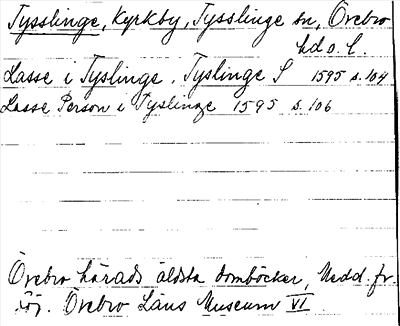 Tysslinge, Kyrkby, Tysslinge sn, Örebro
hd o. l.
Lasse i Tyslinge, Tyslinge S 1595 s. 104
Lasse Person i Tyslinge 1595 s. 106
Örebro härads äldsta domböcker, Medd. fr.
för. Örebro Läns Museum VI